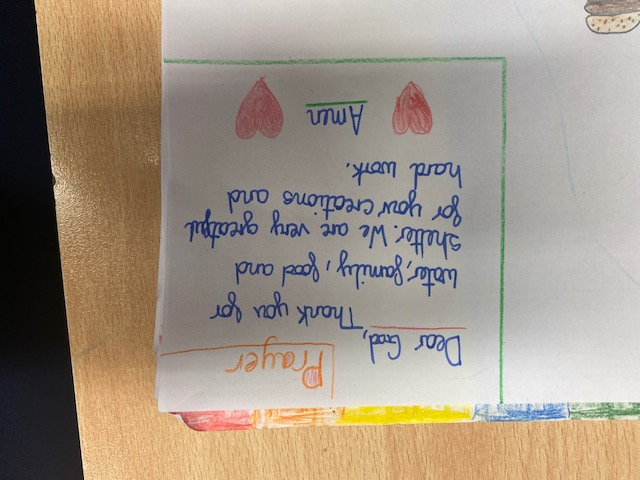 Prayer
Dear God,
Thank you for
water, family, food and
shelter. We are very greatful
for your creations and
hard work.
Amen